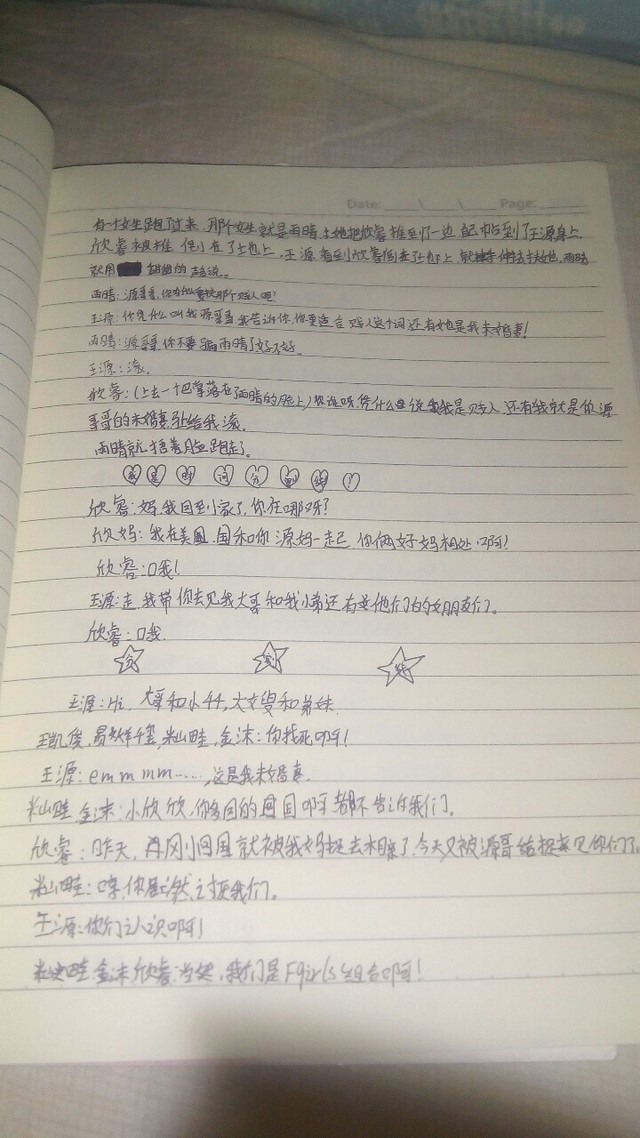 Date: Page:
有一个女生跑了过来,那个女生就是雨晴,她把欣睿推到了一边,自己帖到了王源身上.
欣睿被推倒在了地上,王源看到欣睿倒在了地上就伸手去扶她,雨晴
就用 甜甜的声音说。
雨晴:源哥哥,你为什么要扶那个贱人吧!
王源:你凭什么叫我源哥哥,我告诉你,你更适合贱人这个词还有她是我未婚妻!
雨晴:源哥哥你不要骗雨晴了好不好.
王源:滚.
欣睿:(上去一个巴掌落在了雨晴的脸上)你说呀,凭什么说我是贱人,还有我就是你源
哥哥的未婚妻别给我滚.
雨晴就捂着脸跑走了.
我是时间分割线!
欣睿:妈,我回到家了,你在哪呀?
欣妈:我在美国和你源妈一起,你俩好好相处啊!
欣睿:口我!
王源:走,我带你去见我大哥和我小弟还有他们的女朋友们。
欣睿:口我.
分 割 线
王源:Hi,大哥和小千,大嫂和弟妹.
王凯俊,易烊千玺,米山畦,金沫:你找死啊!
王源:emmmm……,这是我未婚妻.
米山畦,金沫:小欣欣,你多回的国啊都不告诉我们。
欣睿:昨天,刚回国就被我妈捉去相亲了,今天又被源哥给捉来见你们了.
米山畦:哼,你居然之瞒我们。
王源:你们认识啊!
米山畦,金沫,欣睿:当然,我们是Fgirls组合啊!